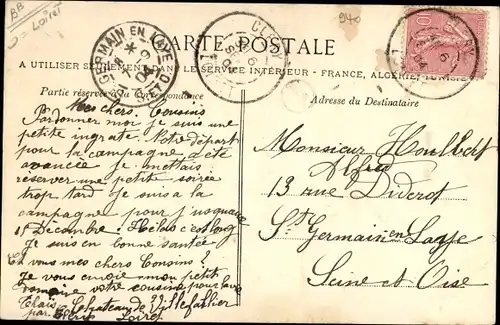 BB
D = Loiret
940
CARTE POSTALE
A UTILISER SEULEMENT DANS LE SERVICE INTÉRIEUR - FRANCE, ALGÉRIE, TUNISIE
Partie réservée à la Correspondance
Adresse du Destinataire
ST GERMAIN EN LAYE
10
Mes chers Cousins
Pardonner moi je suis une
petite ingrate. Votre départ
pour la campagne a été
avancée je mettais
réserver une petite soirée
trop tard Je suis à la
campagne pour jusquau
15 Décembre. Hélas c'est long
Je suis en bonne santée
Et vous mes chers Cousins ?
Je vous envoie mon petit
domaine votre cousine pour la vie
Château de Villefallier
par Loiret
Monsieur Houlbert
Alfred
13 rue Diderot
St Germain en Laye
Seine et Oise